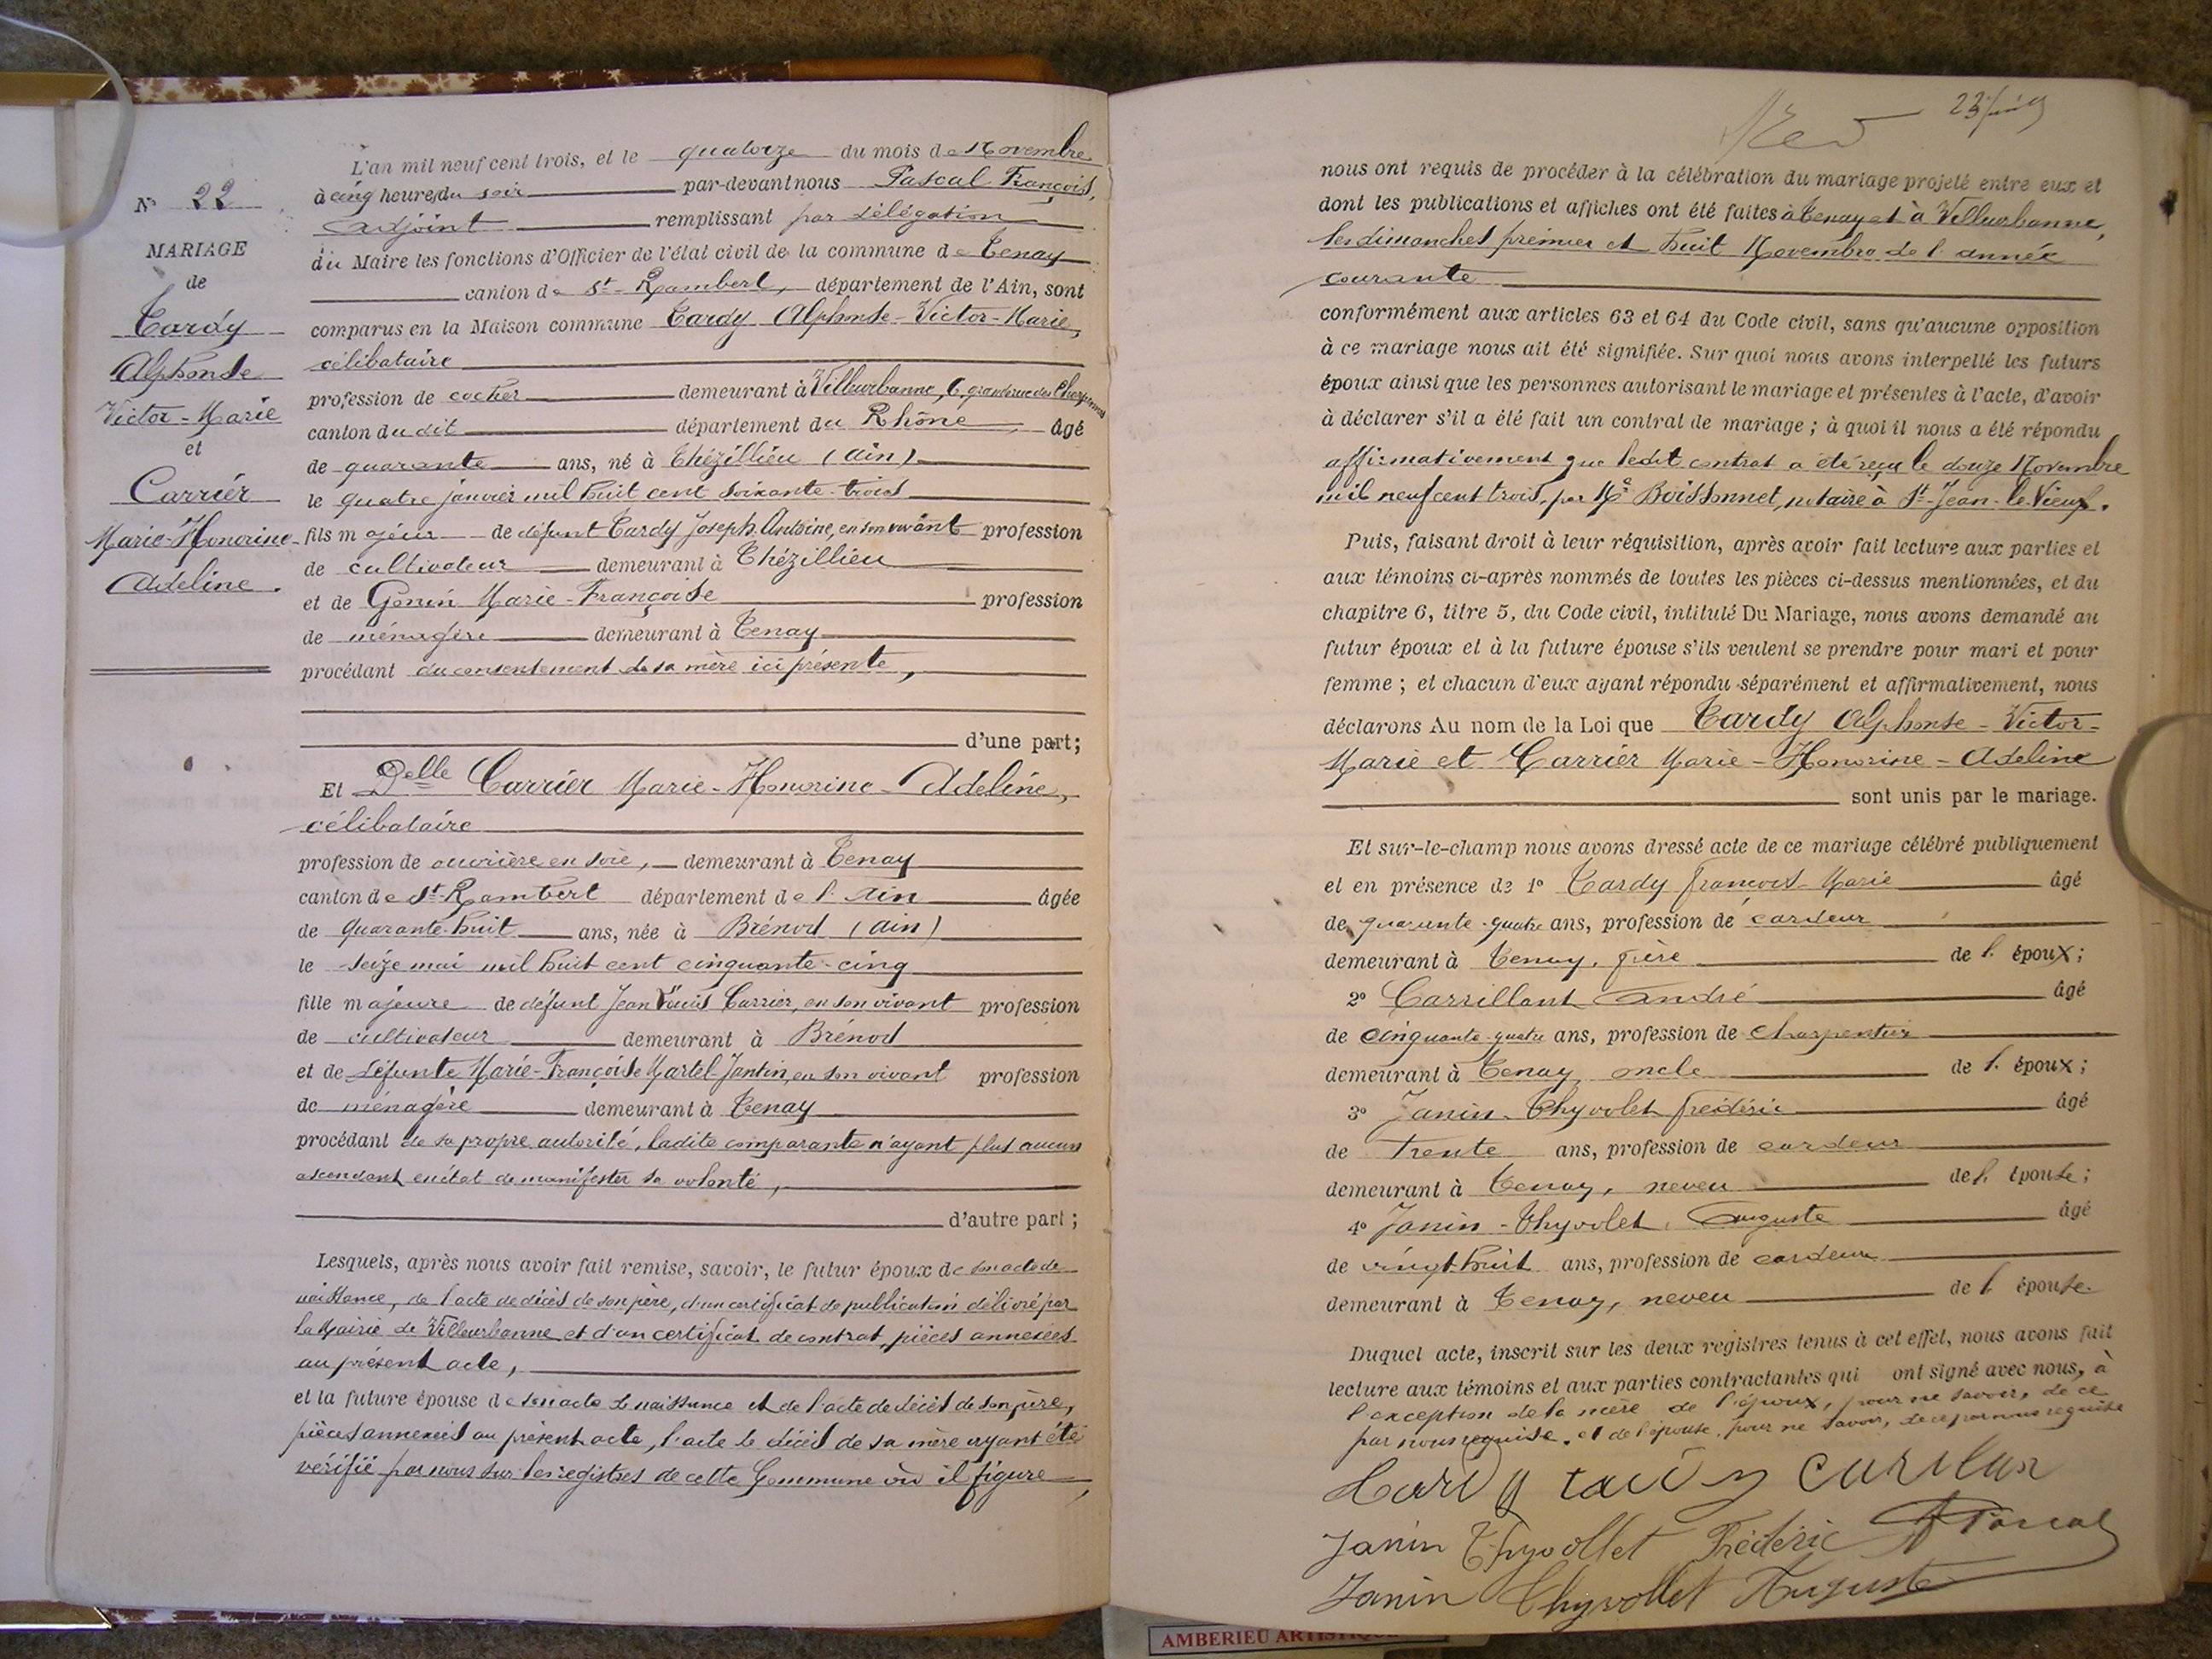 N° 22
MARIAGE
de
Tardy
Alphonse
Victor-Marie
et
Carrier
Marie-Honorine-
Adeline.
L'an mil neuf cent trois, et le quatorze du mois de Novembre
à cinq heures du soir par-devant nous Pascal François,
adjoint remplissant par délégation
du Maire les fonctions d'Officier de l'état civil de la commune de Tenay
canton de St-Rambert, département de l'Ain, sont
comparus en la Maison commune Tardy Alphonse-Victor-Marie,
célibataire
profession de cocher demeurant à Villeurbanne, 6, grande rue des Charpennes
canton du dit département du Rhône, âgé
de quarante ans, né à Thézillieu (Ain)
le quatre janvier mil huit cent soixante-trois
fils majeur de défunt Tardy Joseph Antoine, en son vivant profession
de cultivateur demeurant à Thézillieu
et de Genin Marie-Françoise profession
de ménagère demeurant à Tenay
procédant du consentement de sa mère ici présente,
d'une part;
Et Delle Carrier Marie-Honorine-Adeline,
célibataire
profession de ouvrière en soie, demeurant à Tenay
canton de St-Rambert département de l'Ain âgée
de quarante-huit ans, née à Brénod (Ain)
le seize mai mil huit cent cinquante-cinq
fille majeure de défunt Jean Louis Carrier, en son vivant profession
de cultivateur demeurant à Brénod
et de défunte Marie-Françoise Martel-Jantin, en son vivant profession
de ménagère demeurant à Tenay
procédant de sa propre autorité, ladite comparante n'ayant plus aucun
ascendant en état de manifester sa volonté,
d'autre part;
Lesquels, après nous avoir fait remise, savoir, le futur époux de son acte de
naissance, de l'acte de décès de son père, d'un certificat de publication délivré par
la Mairie de Villeurbanne et d'un certificat de contrat, pièces annexées
au présent acte,
et la future épouse de son acte de naissance et de l'acte de décès de son père,
pièces annexées au présent acte, l'acte de décès de sa mère ayant été
vérifié par nous sur les registres de cette Commune où il figure,
nous ont requis de procéder à la célébration du mariage projeté entre eux et
dont les publications et affiches ont été faites à Tenay et à Villeurbanne,
les dimanches premier et huit Novembre de l'année
courante
conformément aux articles 63 et 64 du Code civil, sans qu'aucune opposition
à ce mariage nous ait été signifiée. Sur quoi nous avons interpellé les futurs
époux ainsi que les personnes autorisant le mariage et présentes à l'acte, d'avoir
à déclarer s'il a été fait un contrat de mariage; à quoi il nous a été répondu
affirmativement que ledit contrat a été reçu le douze Novembre
mil neuf cent trois, par Me Boissonnet, notaire à St-Jean-le-Vieux.
Puis, faisant droit à leur réquisition, après avoir fait lecture aux parties et
aux témoins ci-après nommés de toutes les pièces ci-dessus mentionnées, et du
chapitre 6, titre 5, du Code civil, intitulé Du Mariage, nous avons demandé au
futur époux et à la future épouse s'ils veulent se prendre pour mari et pour
femme; et chacun d'eux ayant répondu séparément et affirmativement, nous
déclarons Au nom de la Loi que Tardy Alphonse-Victor-
Marie et Carrier Marie-Honorine-Adeline
sont unis par le mariage.
Et sur-le-champ nous avons dressé acte de ce mariage célébré publiquement
et en présence de 1° Tardy François-Marie âgé
de quarante-quatre ans, profession de cardeur
demeurant à Tenay, frère de l'époux;
2° Carrillant André âgé
de cinquante-quatre ans, profession de charpentier
demeurant à Tenay, oncle de l'époux;
3° Janin-Thyvolet Frédéric âgé
de trente ans, profession de cardeur
demeurant à Tenay, neveu de l'épouse;
4° Janin-Thyvolet Auguste âgé
de vingt-huit ans, profession de cardeur
demeurant à Tenay, neveu de l'épouse.
Duquel acte, inscrit sur les deux registres tenus à cet effet, nous avons fait
lecture aux témoins et aux parties contractantes qui ont signé avec nous, à
l'exception de la mère de l'époux, pour ne savoir, de ce
par nous requise, et de l'épouse, pour ne savoir, de ce par nous requise
Tardy tardy
Janin Thyvollet Frédéric Pascal
Janin Thyvollet Auguste
AMBERIEU